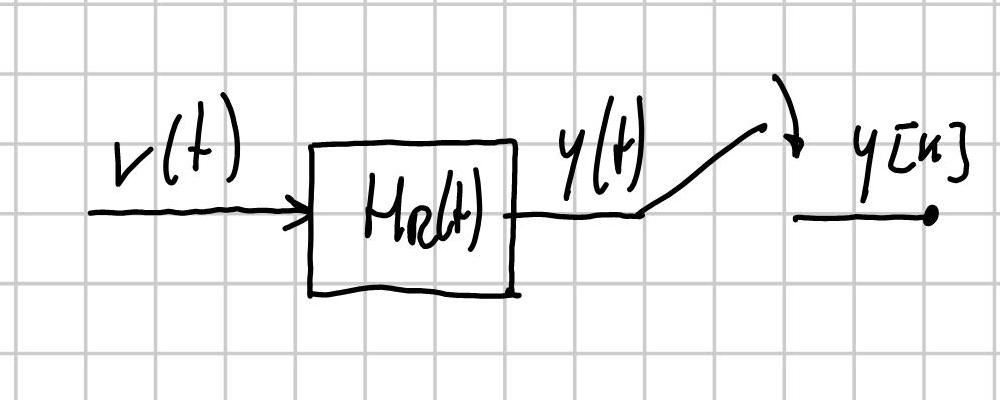 v(t)
H_R(t)
y(t)
y[n]